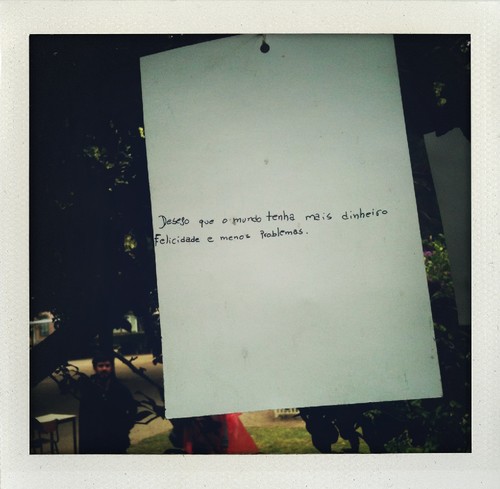 Desejo que o mundo tenha mais dinheiro
Felicidade e menos Problemas.